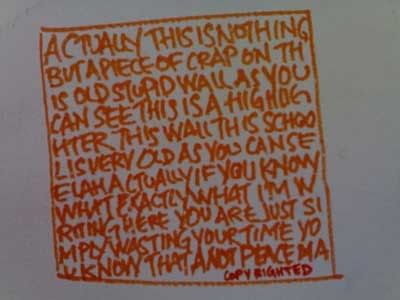 ACTUALLY THIS IS NOTHING
BUT A PIECE OF CRAP ON TH
IS OLD STUPID WALL AS YOU
CAN SEE THIS IS A HIGHLIG
HTER THIS WALL THIS SCHOO
L IS VERY OLD AS YOU CAN SE
E LAH ACTUALLY IF YOU KNOW
WHAT EXACTLY WHAT I'M W
RITING HERE YOU ARE JUST SI
MPLY WASTING YOUR TIME YO
U KNOW THAT ANOT PEACE MA
COPYRIGHTED